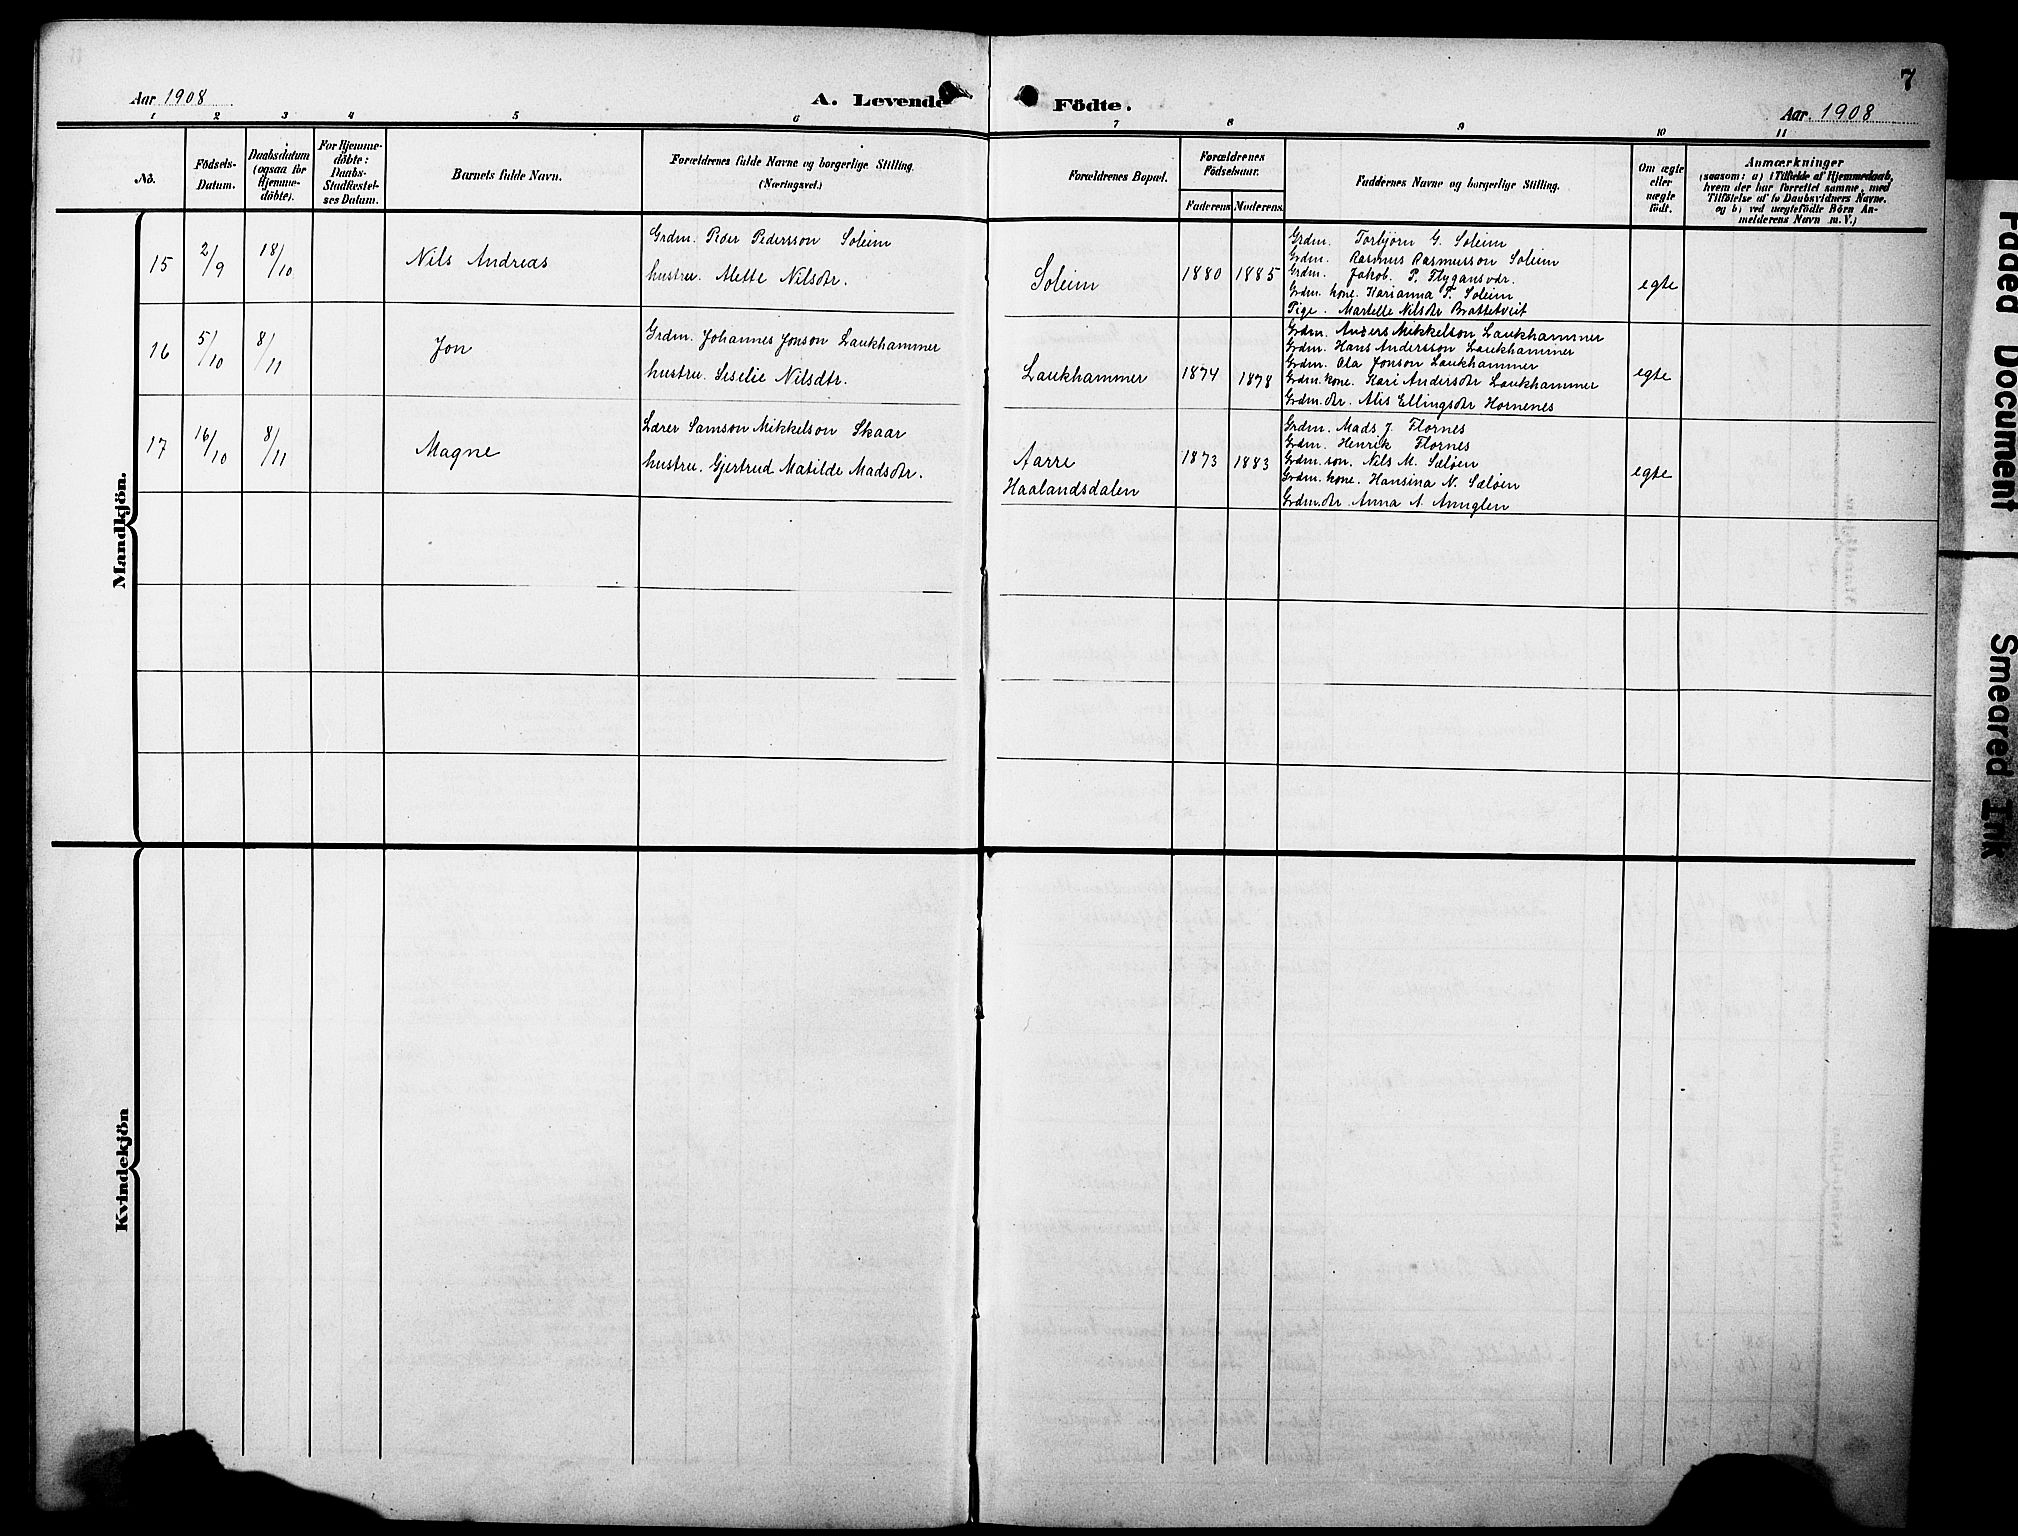 7
Aar 1908
A. Levende Födte.
Aar 1908
1 2 3 4 5 6 7 8 9 10 11
No.
Födsels-
Datum.
Daabsdatum
(ogsaa for
Hjemme-
döbte).
For Hjemme-
döbte:
Daabs-
Stadfæstel-
ses Datum.
Barnets fulde Navn.
Forældrenes fulde Navne og borgerlige Stilling.
(Næringsvei.)
Forældrenes Bopæl.
Forældrenes
Födselsaar.
Faderens Moderens
Faddernes Navne og borgerlige Stilling.
Om ægte
eller
uægte
født.
Anmærkninger
(saasom: a) i Tilfælde af Hjemmedaab,
hvem der har forrettet samme, med
Tilföielse af to Daabsvidners Navne.
og b) ved uægtefödte Börn An-
melderens Navn m. V.)
Mandkjön.
15 2/9 18/10 Nils Andreas
Grdm. Peder Pedersson Soleim
hustru. Mette Nilsdtr.
Soleim 1880 1885
Grdm. Torbjörn G. Soleim
Grdm. Rasmus Rasmusson Soleim
Grdm. Jakob P. Flygansvær.
Grdm. kone. Karianna P. Soleim
Pige. Martelle Nilsdtr Brattetveit
egte
16 5/10 8/11 Jon
Grdm. Johannes Jonson Laukhammer
hustru. Seselie Nilsdtr.
Laukhammer 1874 1878
Grdm. Anders Mikkelson Laukhammer
Grdm. Hans Andersson Laukhammer
Grdm. Ola Jonson Laukhammer
Grdm. kone. Kari Andersdtr Laukhammer
Grdm. dtr. Alis Ellingsdtr Hornenes
egte
17 16/10 8/11 Magne
Lærer Samson Mikkelson Skaar
hustru. Gjertrud Matilde Madsdtr.
Aarre
Haalandsdalen
1873 1883
Grdm. Mads J. Flornes
Grdm. Henrik Flornes
Grdm. son. Nils M. Sæløen
Grdm. kone. Hansina N. Sæløen
Grdm. dtr. Anna A.
egte
Kvindekjön
Faded Document
Smeared Ink